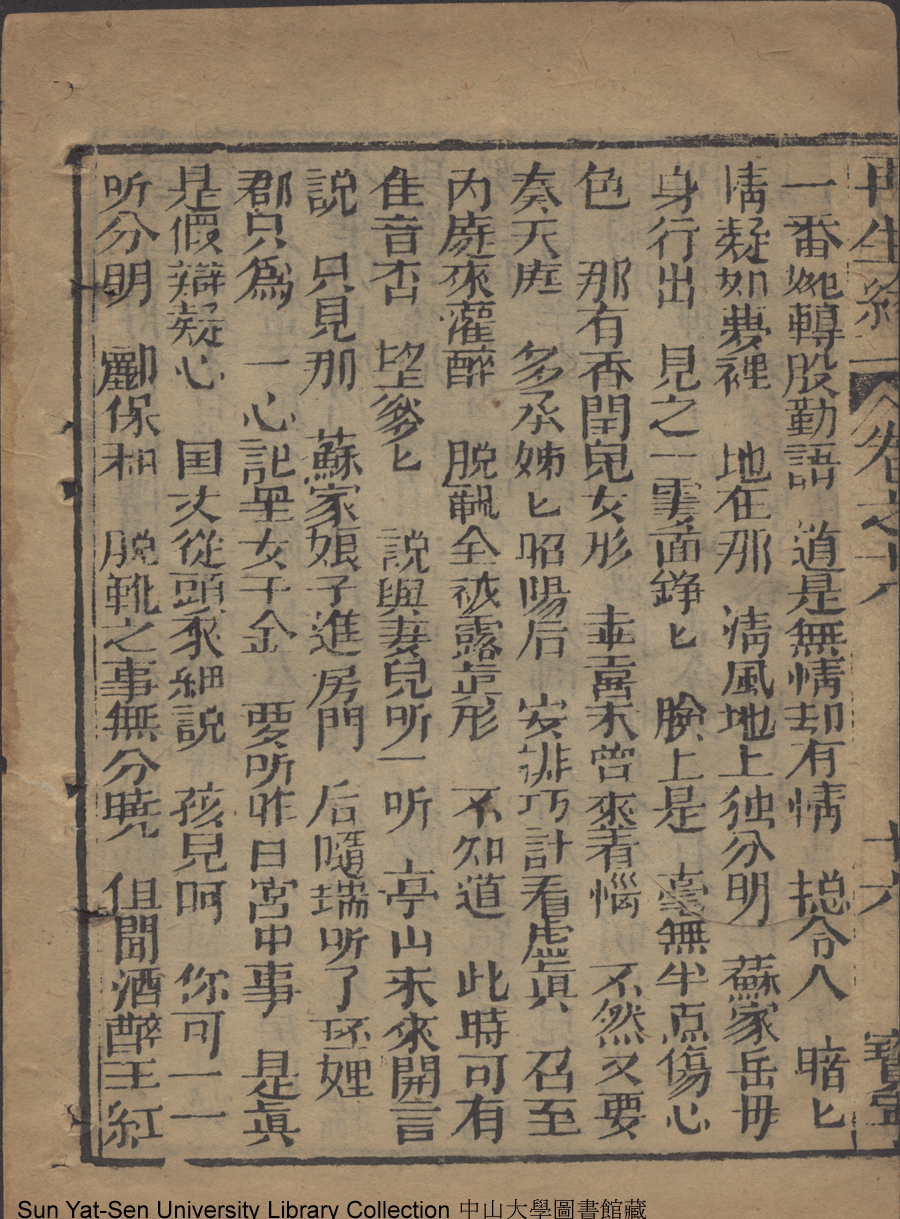 再生緣 卷之十八 十六 寶
一番婉轉殷勤語 道是無情却有情 搃令人 暗匕
情疑如夢裡 地在那 清風地上独分明 蘇家岳毋
身行出 見之一霎面錚匕 臉上是 毫無半点傷心
色 那有香閨皃女形 幸喜未曾來着惱 不然又要
奏天庭 多承姊匕昭陽后 安排巧計看虛真 召至
內庭來灌醉 脫靴全被露眞形 不知道 此時可有
隹音否 望爹匕 說與妻兒听一听 亭山未來開言
說 只見那 蘇家娘子進房門 后隨瑞 了 理
郡只為 一心記望女千金 要听昨日宮中事 是眞
是假辯疑心 囯丈從頭來細說 孩兒呵 你可一一
听分明 酈保相 脫靴之事無分曉 但聞酒醉王紅